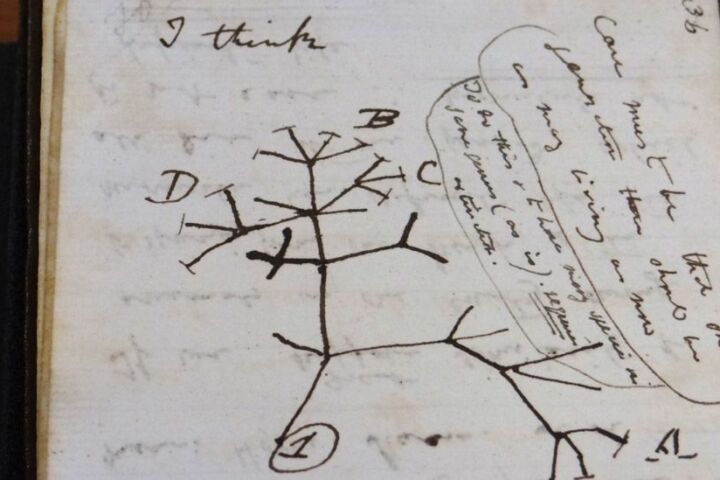 36
I think
Case must be that
generation then should be
as many living as now
To do this & to have many species in
same genus (as is). requires
extinction.
B
D
C
A
1